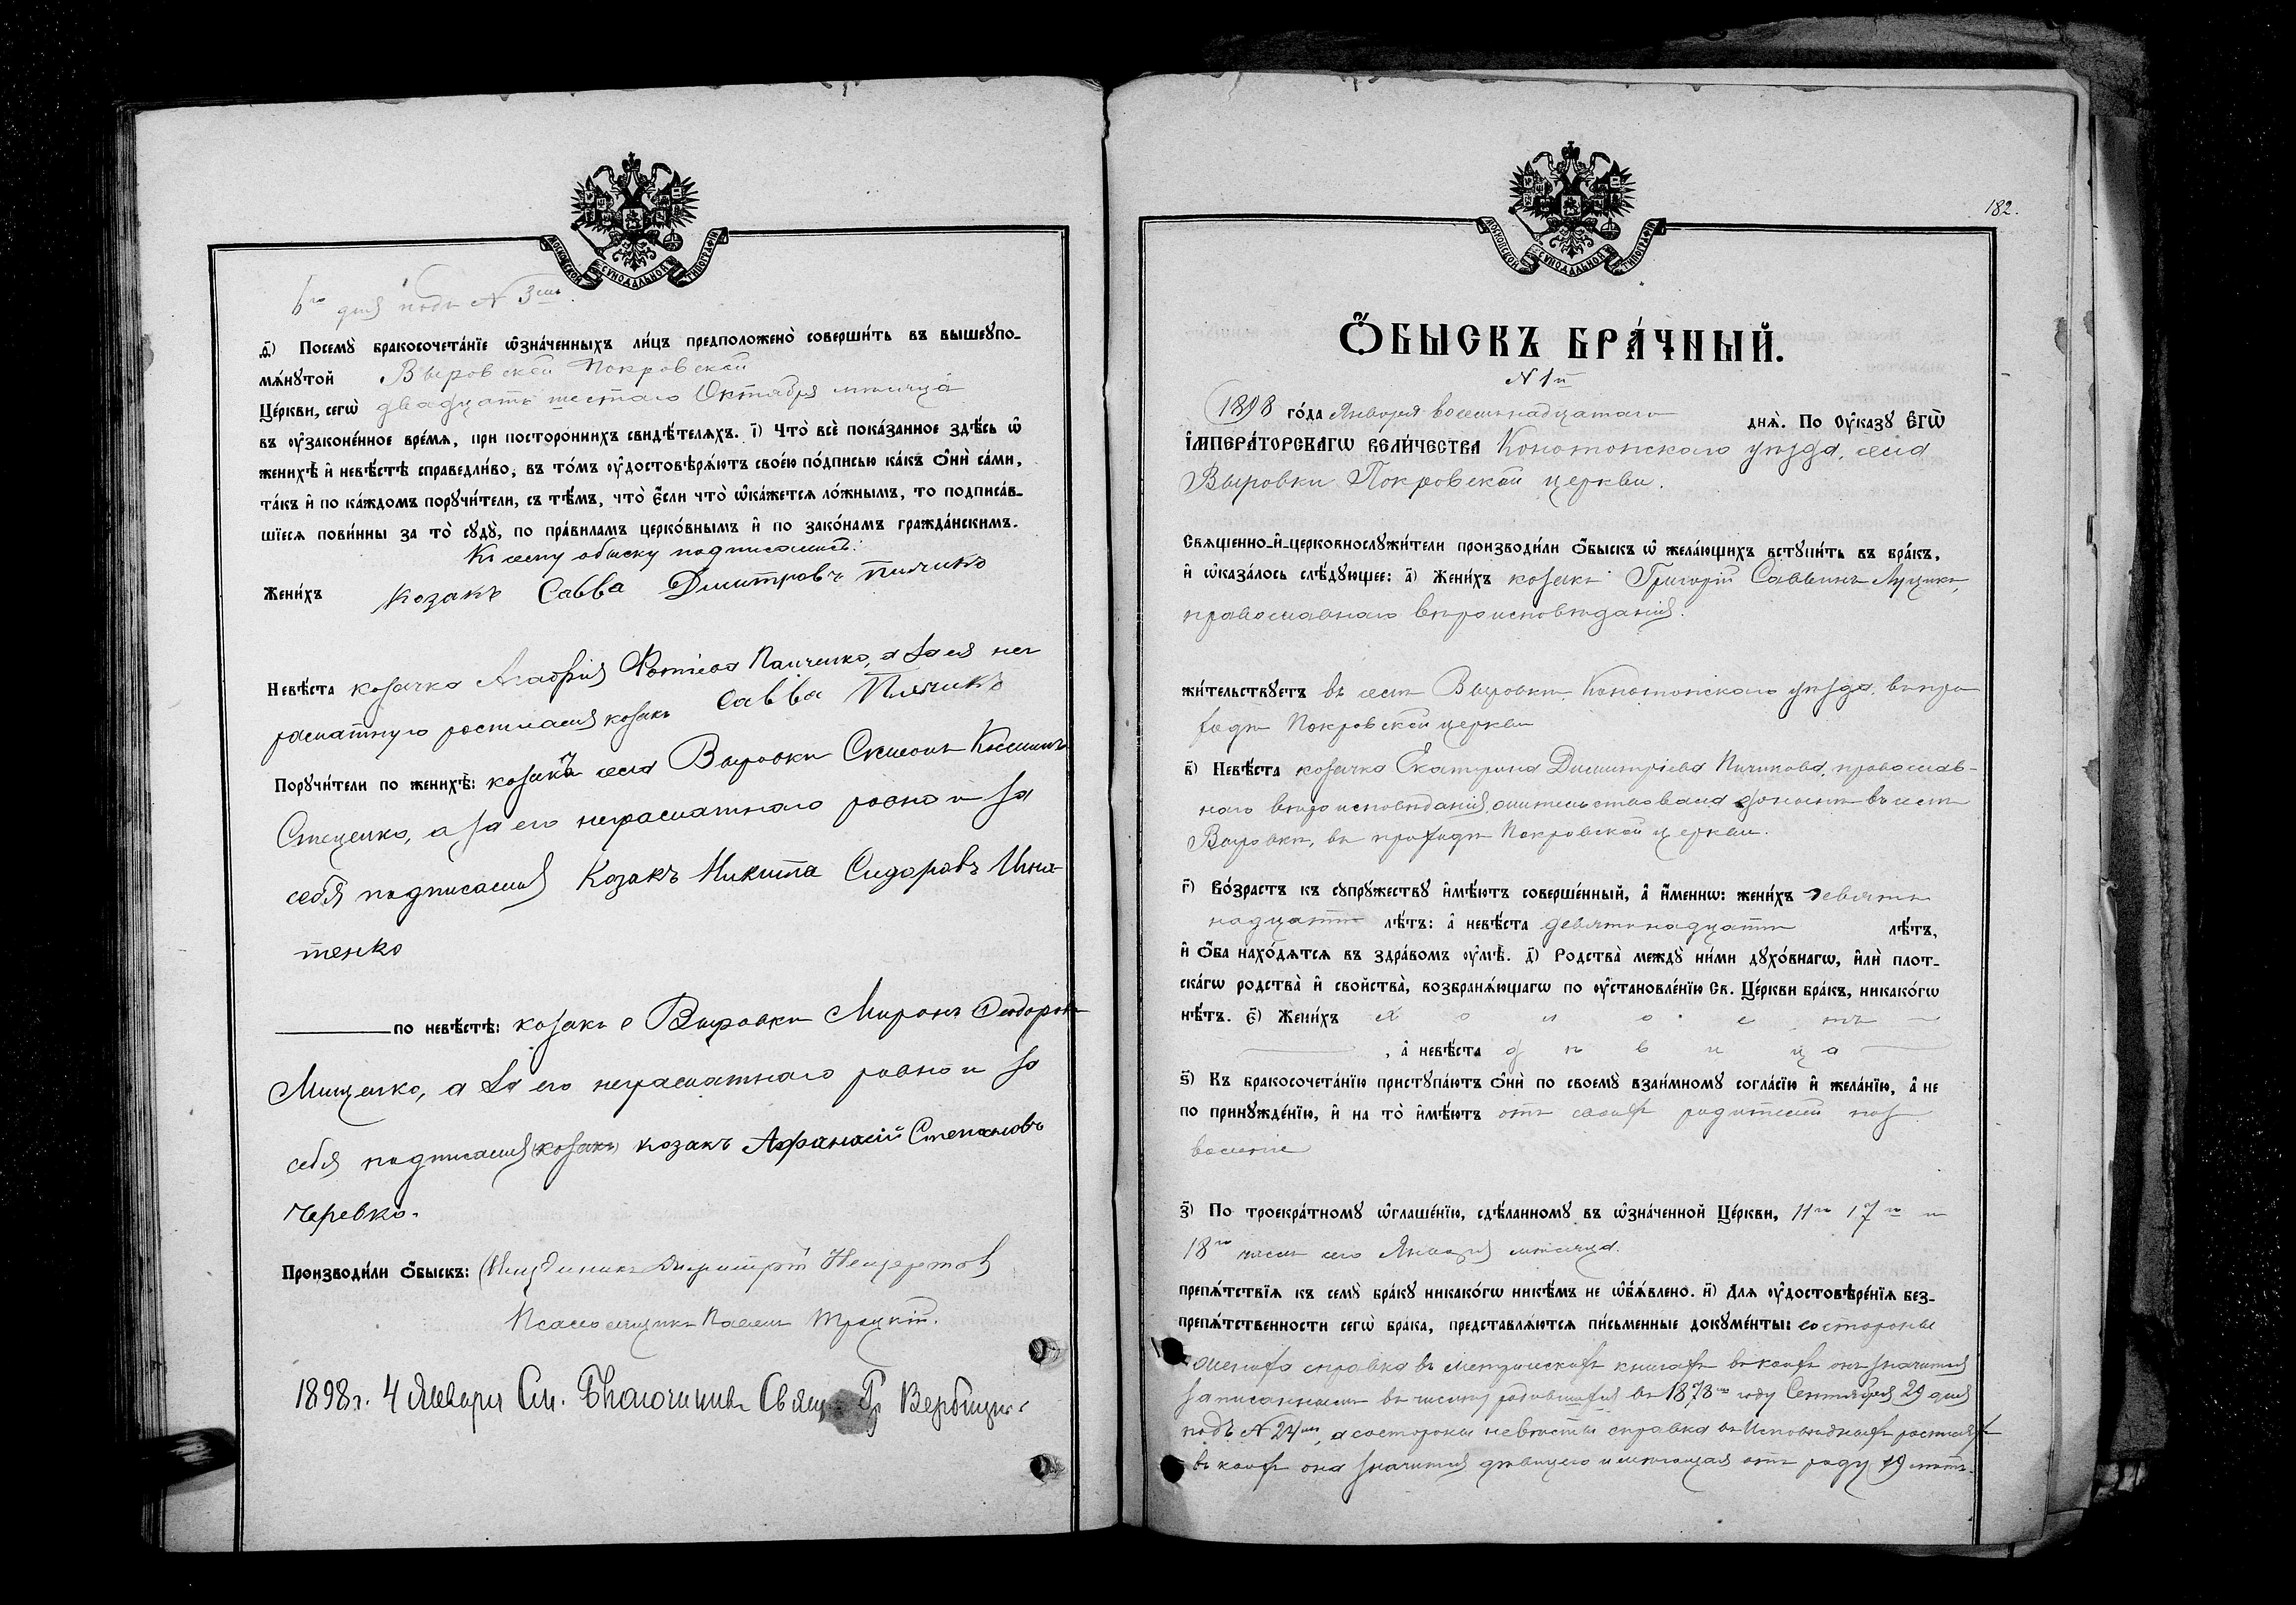 МОСКОВСКОЙ СѴНОДАЛЬНОЙ ТИПОГРАФІИ
6го дня подъ № 3мъ.
ѳ҃) Посемꙋ̀ бракосочета́нїе ѡ҆зна́ченныхъ ли́цъ предположено̀ соверши́ть въ вышеꙋпо-
мѧ́нꙋтой Выровской Покровской
Це́ркви, сегѡ̀ двадцать шестаго Октября мѣсяца
въ ᲂу҆законе́нное вре́мѧ, при посторо́ннихъ свидѣ́телѧхъ. і҃) Что̀ всѐ пока́занное здѣ́сь ѡ҆
женихѣ̀ и҆ невѣ́стѣ справедли́во, въ то́мъ ᲂу҆достовѣрѧ́ютъ свое́ю по́дписью ка́къ ѻ҆нѝ са́ми,
та́къ и҆ по ка́ждомъ порꙋчи́тели, съ тѣ́мъ, что̀ є҆́сли что̀ ѡ҆ка́жетсѧ ло́жнымъ, то подписа́в-
шїесѧ пови́нны за то̀ сꙋдꙋ̀, по пра́виламъ церко́внымъ и҆ по зако́намъ гражда́нскимъ.
Къ сему обыску подписались:
Жени́хъ Козакъ Савва Димитровъ Пичико
Невѣ́ста козачка Агафія Фотіева Панченко, а за ея не
грамотную росписался козакъ Савва Пичико
Порꙋчи́тели по женихѣ̀: козакъ села Выровки Симеонъ Косминъ
Стеценко, а за его неграмотнаго ровно и за
себя подписался Козакъ Никита Сидоровъ Игна-
тенко
по невѣ́стѣ: козакъ с Выровки Миронъ Ѳеодоровъ
Мищенко, а за его неграмотнаго ровно и за
себя подписался (козакъ) козакъ Афанасій Степановъ
Черевко.
Производи́ли ѻ҆́быскъ: Священникъ Димитрій
Псаломщикъ Павелъ Троцкій.
1898г. 4 Января См. Благочинный Свящ. Гр Вербицкій
182.
МОСКОВСКОЙ СѴНОДАЛЬНОЙ ТИПОГРАФІИ
Ѻ҆́БЫСКЪ БРА́ЧНЫЙ.
№ 1й
1898 го́да Января восемьнадцатаго днѧ̀. По ᲂу҆ка́зꙋ Є҆ГѠ̀
І҆МПЕРА́ТОРСКАГѠ ВЕЛИ́ЧЕСТВА Конотопскаго уѣзда, села
Выровки Покровской церкви.
Свѧще́нно-и҆-церковнослꙋжи́тели производи́ли ѻ҆́быскъ ѡ҆ жела́ющихъ встꙋпи́ть въ бра́къ,
и҆ ѡ҆каза́лось слѣ́дꙋющее: а҃) Жени́хъ козакъ Григорій Саввинъ Луцикъ,
православнаго вѣроисповѣданія.
жи́тельствꙋетъ въ селѣ Выровки Конотопскаго уѣзда, въ при-
ходѣ Покровской церкви
в҃) Невѣ́ста козачка Екатерина Димитріева Пичикова, православ-
наго вѣроисповѣданія, жительствовала донынѣ въ селѣ
Выровки, въ приходѣ Покровской церкви.
г҃) Во́зрастъ къ сꙋпрꙋ́жествꙋ и҆мѣ́ютъ соверше́нный, а҆ и҆́меннѡ: жени́хъ девять
надцать лѣ́тъ: а҆ невѣ́ста девятьнадцать лѣ́тъ,
и҆ ѻ҆́ба нахо́дѧтсѧ въ здра́вомъ ᲂу҆мѣ̀. д҃) Родства̀ междꙋ̀ ни́ми дꙋхо́внагѡ, и҆лѝ плот-
ска́гѡ родства̀ и҆ сво́йства̀, возбранѧ́ющагѡ по ᲂу҆становле́нїю Св. Це́ркви бра́къ, никако́гѡ
нѣ́тъ. є҃) Жени́хъ холостъ
, а҆ невѣ́ста дѣвица
ѕ҃) Къ бракосочета́нїю пристꙋпа́ютъ ѻ҆нѝ по своемꙋ̀ взаи́мномꙋ согла́сїю и҆ жела́нїю, а҆ не
по принꙋжде́нїю, и҆ на то̀ и҆мѣ́ютъ отъ своихъ родителей поз
воленіе
з҃) По троекра́тномꙋ ѡ҆глаше́нїю, сдѣ́ланномꙋ въ ѡ҆зна́ченной Це́ркви, 11го 17го и
18го числъ сего Января мѣсяца.
препѧ́тствїѧ къ семꙋ̀ бра́кꙋ никако́гѡ никѣ́мъ не ѡ҆б̾ѧ́влено. и҃) Длѧ ᲂу҆достовѣре́нїѧ без-
препѧ́тственности сегѡ̀ бра́ка, представлѧ́ютсѧ пи́сьменные докꙋме́нты: со стороны
жениха справка въ метрическихъ книгахъ въ коихъ онъ значится
записаннымъ въ числѣ родившихся въ 1878мъ году Сентября 29 дня
подъ № 24мъ, а со стороны невѣсты справка въ Исповѣдныхъ росписяхъ
въ коихъ она значится дѣвицею имѣющая отъ роду 19 лѣтъ.